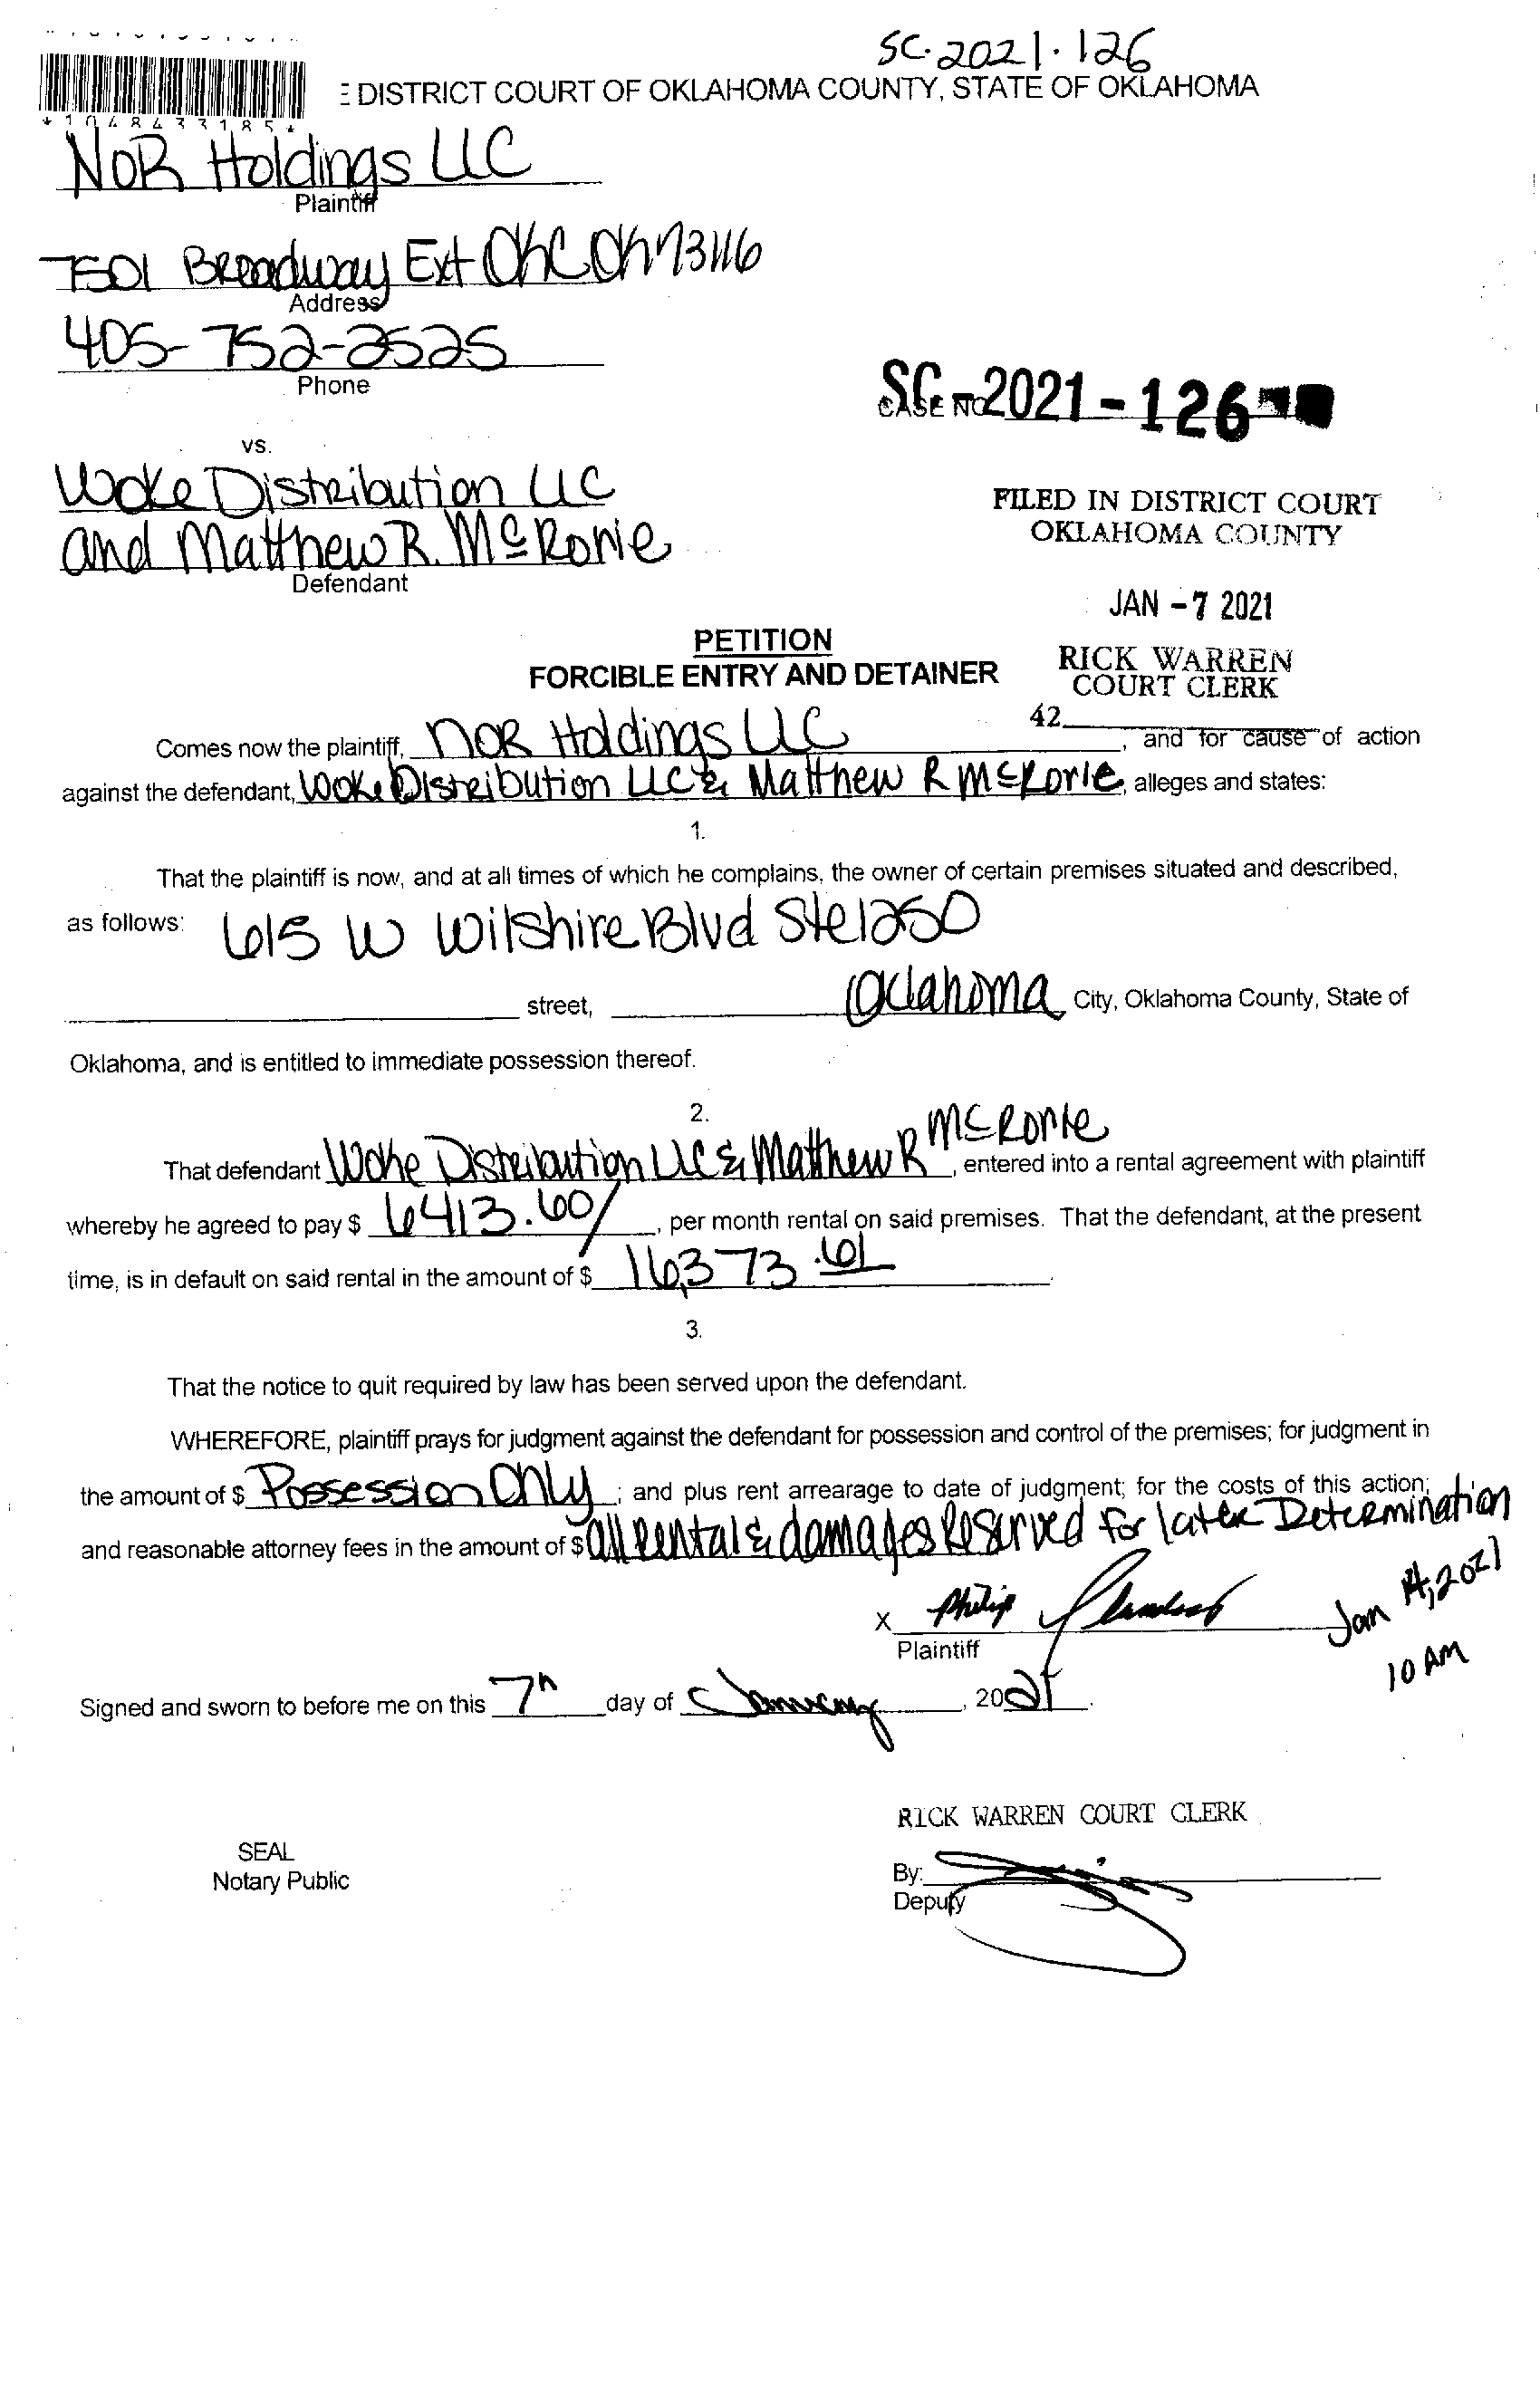 SC-2021-126
DISTRICT COURT OF OKLAHOMA COUNTY, STATE OF OKLAHOMA
*1048433185*
NOR Holdings LLC
Plaintiff
7501 Broadway Ext OKC OK 73116
Address
405-752-2525
Phone
CASE NO.
SC-2021-126
vs.
Woke Distribution LLC
and Matthew R. McRorie
Defendant
FILED IN DISTRICT COURT
OKLAHOMA COUNTY
JAN -7 2021
RICK WARREN
COURT CLERK
42
PETITION
FORCIBLE ENTRY AND DETAINER
Comes now the plaintiff, NOR Holdings LLC, and for cause of action
against the defendant, Woke Distribution LLC & Matthew R McRorie, alleges and states:
1.
That the plaintiff is now, and at all times of which he complains, the owner of certain premises situated and described,
as follows: 615 W Wilshire Blvd Ste 1250
street, Oklahoma City, Oklahoma County, State of
Oklahoma, and is entitled to immediate possession thereof.
2.
That defendant Woke Distribution LLC & Matthew R McRorie, entered into a rental agreement with plaintiff
whereby he agreed to pay $ 6413.60/, per month rental on said premises. That the defendant, at the present
time, is in default on said rental in the amount of $ 16,373.61.
3.
That the notice to quit required by law has been served upon the defendant.
WHEREFORE, plaintiff prays for judgment against the defendant for possession and control of the premises; for judgment in
the amount of $ Possession Only; and plus rent arrearage to date of judgment; for the costs of this action;
and reasonable attorney fees in the amount of $ all Rental & damages Reserved for later Determination
X Philip
Plaintiff
Jan 14, 2021
10 AM
Signed and sworn to before me on this 7th day of January, 2021.
RICK WARREN COURT CLERK
SEAL
Notary Public
By:
Deputy